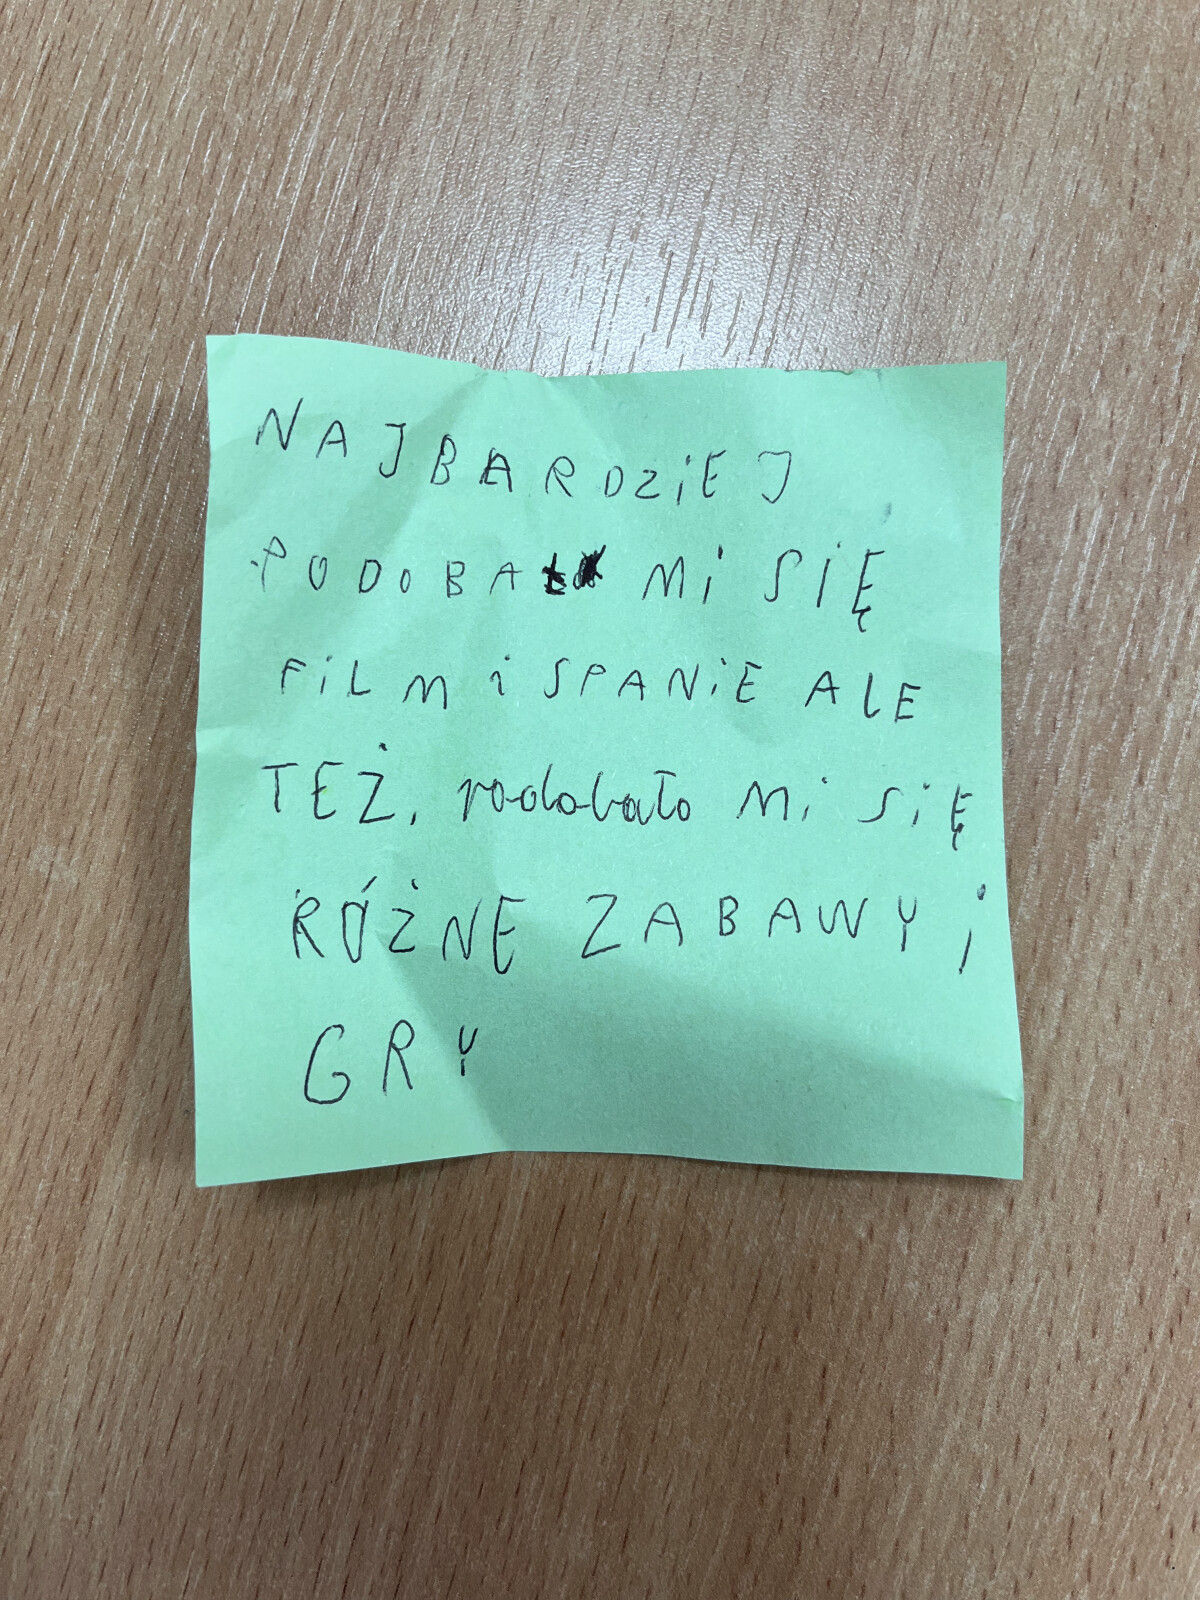 NAJBARDZIEJ
PODOBAŁ MI SIĘ
FILM i SPANIE ALE
TEŻ, podobało Mi SiĘ
RÓŻNE ZABAWY i
GRY